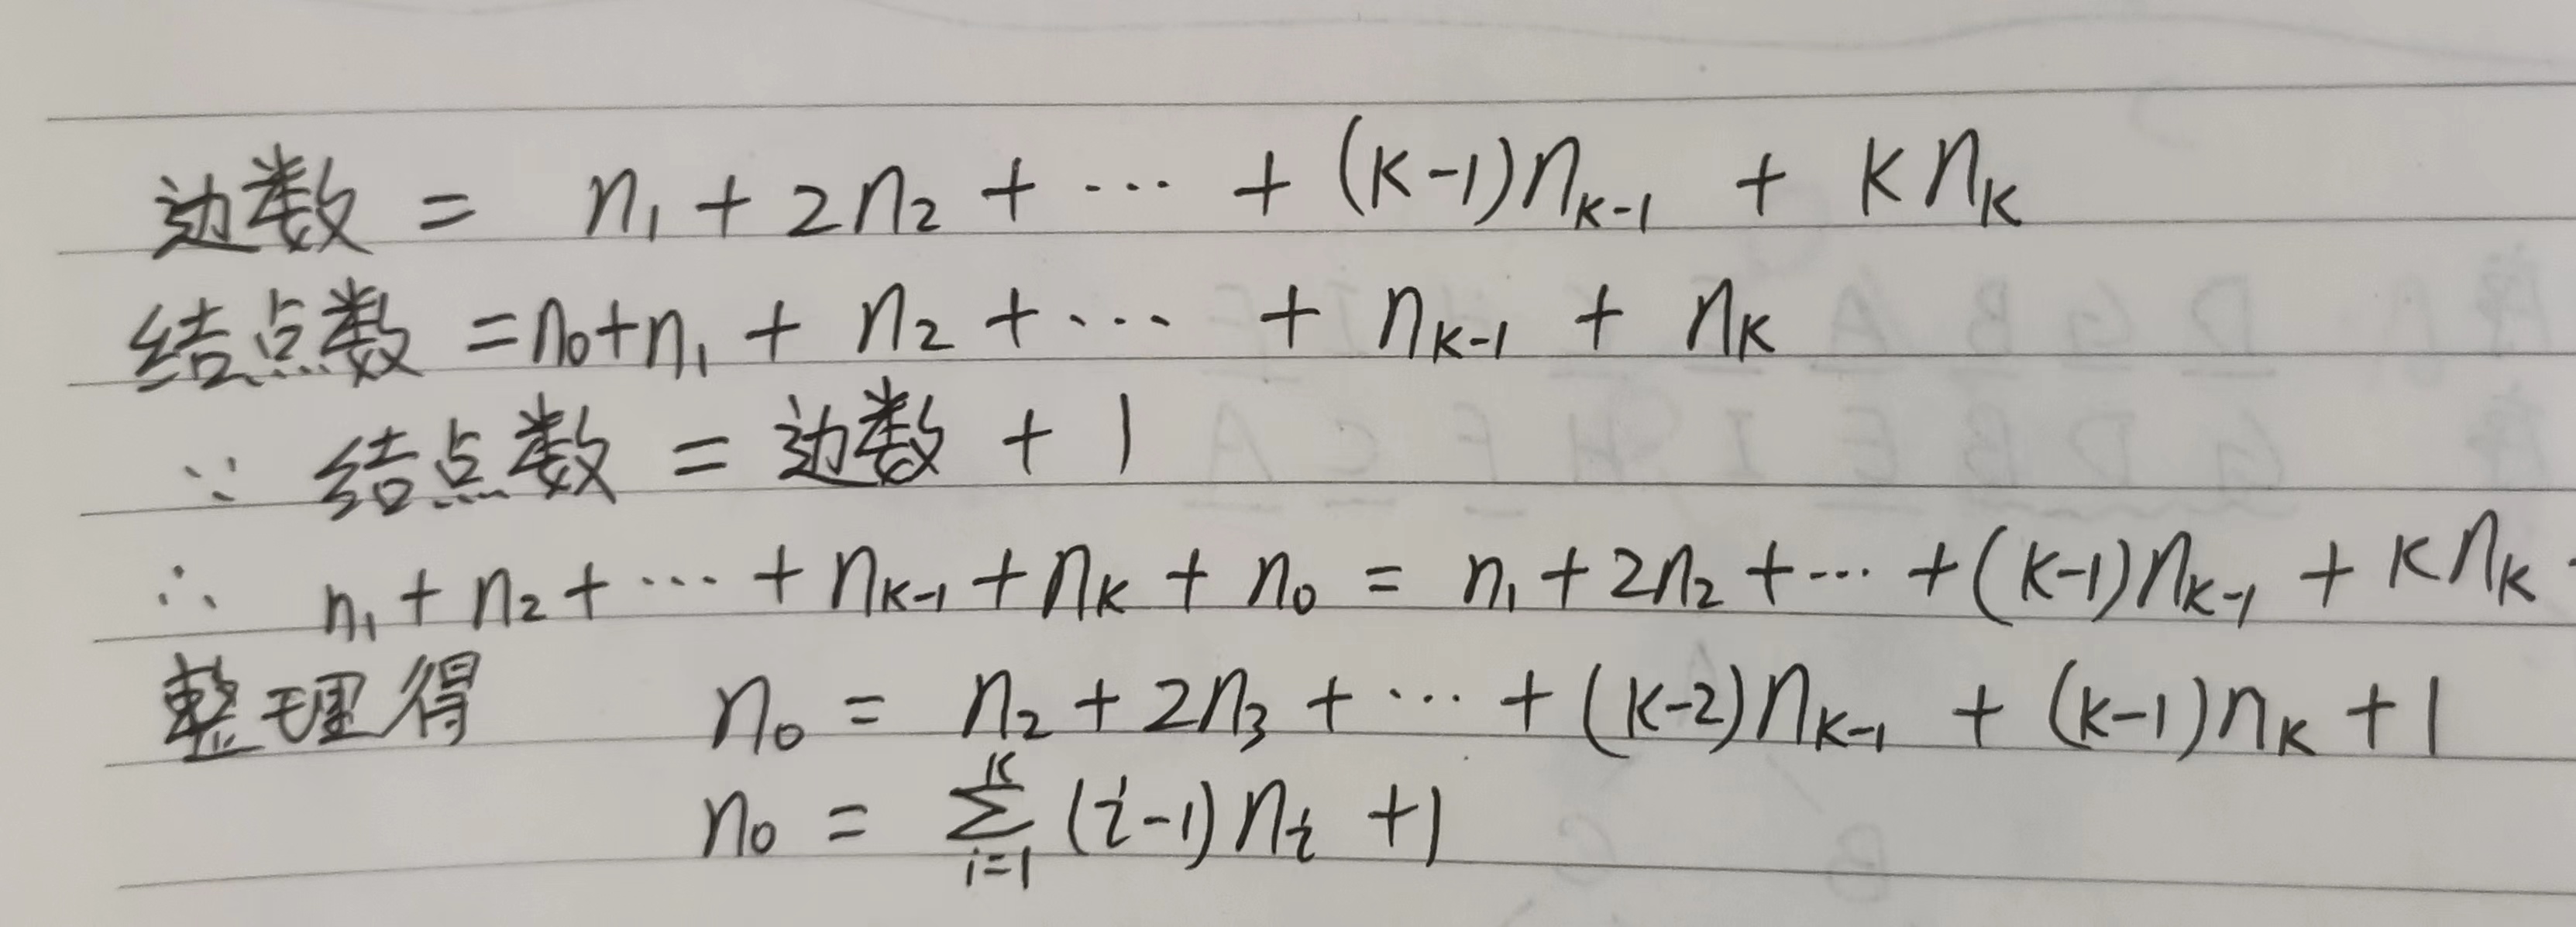 边数 = n₁ + 2n₂ + ··· + (k-1)nₖ₋₁ + knₖ
结点数 = n₀+n₁ + n₂ + ··· + nₖ₋₁ + nₖ
∵ 结点数 = 边数 + 1
∴ n₁ + n₂ + ··· + nₖ₋₁ + nₖ + n₀ = n₁ + 2n₂ + ··· + (k-1)nₖ₋₁ + knₖ
整理得 n₀ = n₂ + 2n₃ + ··· + (k-2)nₖ₋₁ + (k-1)nₖ + 1
n₀ = ∑ᵢ₌₁ᵏ (i-1)nᵢ + 1